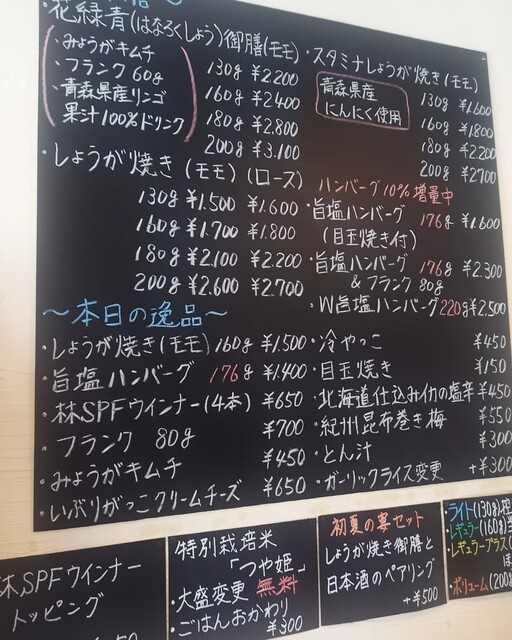 ・花緑青(はなろくしょう)御膳(モモ)
・みょうがキムチ
・フランク 60g
・青森県産リンゴ
果汁100%ドリンク
130g ¥2.200
160g ¥2.400
180g ¥2.800
200g ¥3.100
・しょうが焼き(モモ)(ロース)
130g ¥1.500 ¥1.600
160g ¥1.700 ¥1.800
180g ¥2.100 ¥2.200
200g ¥2.600 ¥2.700
〜本日の逸品〜
・しょうが焼き(モモ)160g ¥1.500
・旨塩ハンバーグ 176g ¥1.400
・林SPFウインナー(4本) ¥650
・フランク 80g ¥700
・みょうがキムチ ¥450
・いぶりがっこクリームチーズ ¥650
・スタミナしょうが焼き(モモ)
青森県産
にんにく使用
130g ¥1.600
160g ¥1.800
180g ¥2.200
200g ¥2.700
ハンバーグ10%増量中
・旨塩ハンバーグ 176g ¥1.600
(目玉焼き付)
・旨塩ハンバーグ 176g ¥2.300
&フランク 80g
・W旨塩ハンバーグ 220g ¥2.500
・冷やっこ ¥450
・目玉焼き ¥150
・北海道仕込みイカの塩辛 ¥450
・紀州昆布巻き梅 ¥550
・とん汁 ¥300
・ガーリックライス変更 +¥300
林SPFウインナー
トッピング
特別栽培米
「つや姫」
・大盛変更 無料
・ごはんおかわり
¥300
初夏の宴セット
しょうが焼き御膳と
日本酒のペアリング
+¥500
・ライト(130g)
・レギュラー(160g)
・レギュラープラス(
・ボリューム(200g